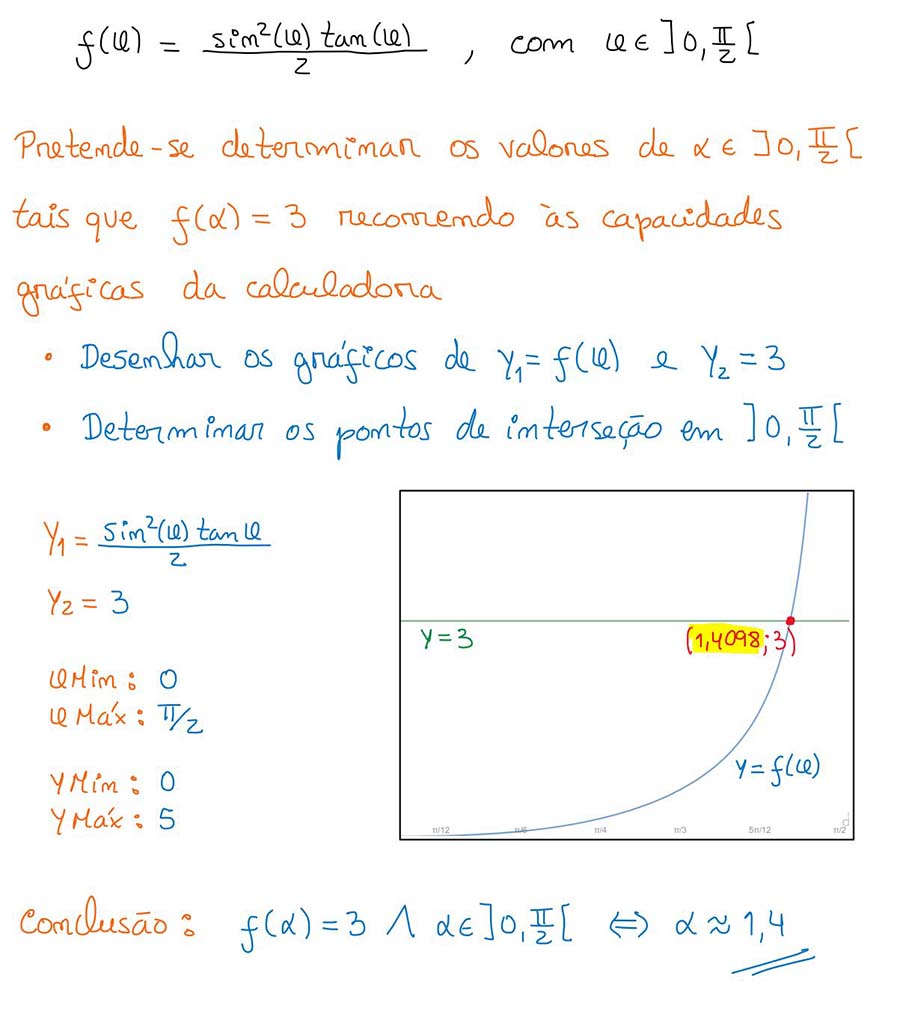 f(x) = sin²(x) tan(x) / 2 , com x ∈ ]0, π/2 [
Pretende-se determinar os valores de α ∈ ]0, π/2 [
tais que f(α) = 3 recorrendo às capacidades
gráficas da calculadora
• Desenhar os gráficos de Y₁ = f(x) e Y₂ = 3
• Determinar os pontos de interseção em ]0, π/2 [
Y₁ = sin²(x) tan x / 2
Y₂ = 3
x Min : 0
x Máx : π/2
Y Min : 0
Y Máx : 5
y = 3
(1,4098; 3)
y = f(x)
π/12 π/6 π/4 π/3 5π/12 π/2
Conclusão : f(α) = 3 ∧ α ∈ ]0, π/2 [ ⇔ α ≈ 1,4